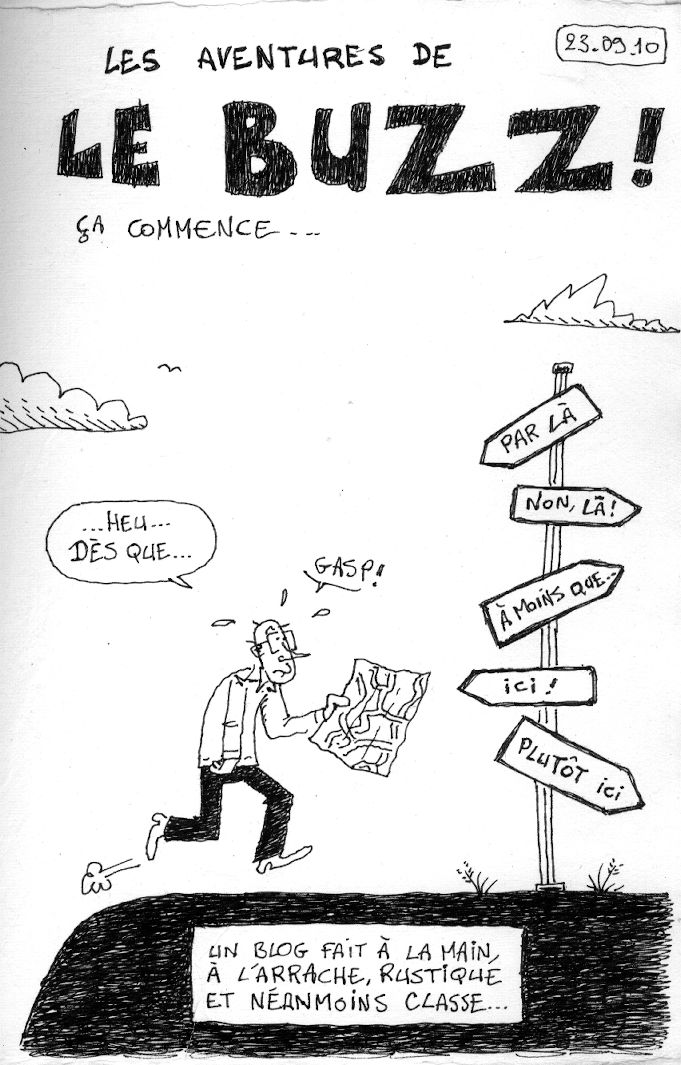 LES AVENTURES DE
23.09.10
LE BUZZ!
ÇA COMMENCE...
PAR LÀ
NON, LÀ!
À MOINS QUE..
ici!
PLUTÔT ici
...HEU...
DÈS QUE...
GASP!
UN BLOG FAIT À LA MAIN,
À L'ARRACHE, RUSTIQUE
ET NÉANMOINS CLASSE...